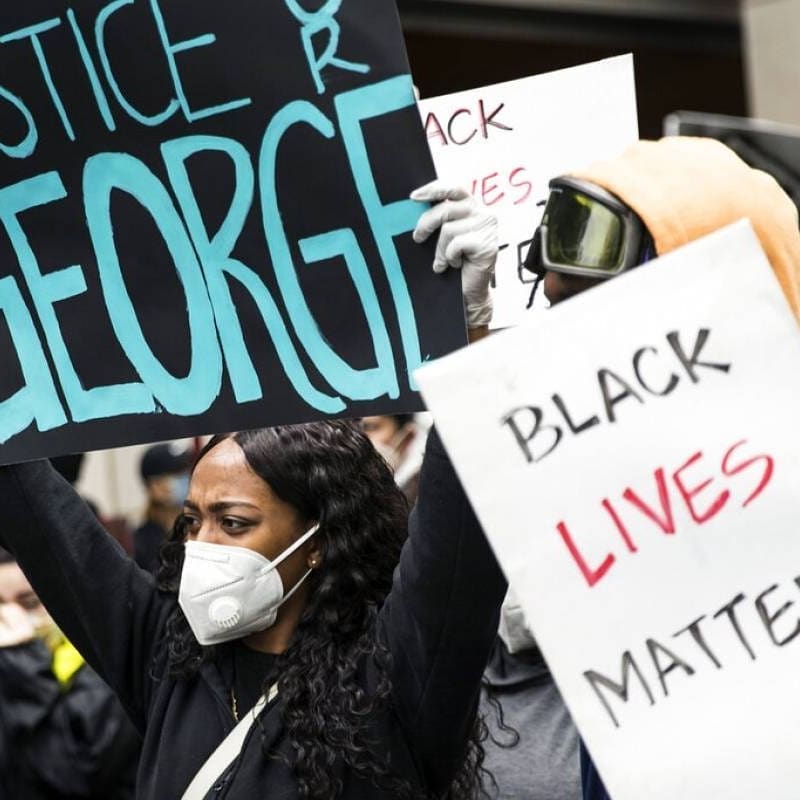 STICE
OR
GEORGE
ACK
VES
TE
BLACK
LIVES
MATTE